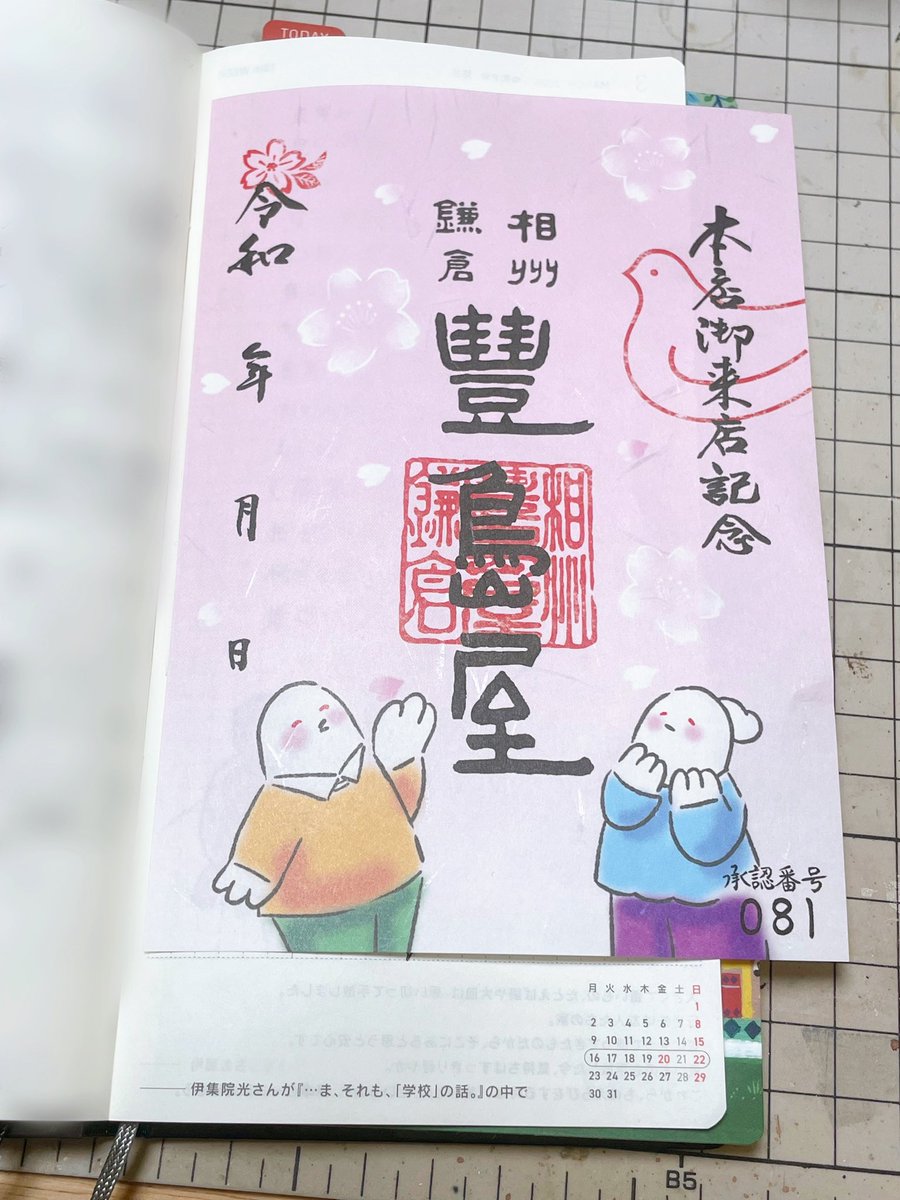 TODAY
本店御来店記念
相州
鎌倉
豐島屋
相州
鎌倉
令和 年 月 日
承認番号
081
月 火 水 木 金 土 日
1
2 3 4 5 6 7 8
9 10 11 12 13 14 15
16 17 18 19 20 21 22
23 24 25 26 27 28 29
30 31
伊集院光さんが『…ま、それも、「学校」の話。』の中で
B5